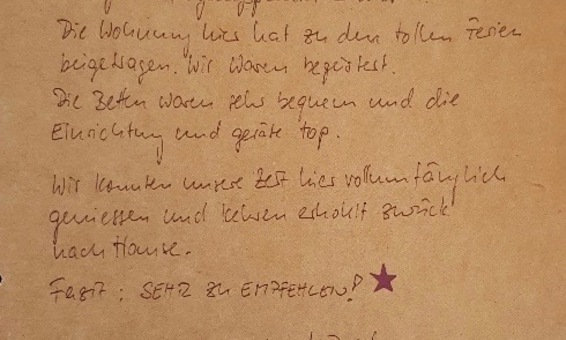 Die Wohnung hier hat zu den tollen Ferien
beigetragen. Wir waren begeistert.
Die Betten waren sehr bequem und die
Einrichtung und geräte top.
Wir konnten unsere Zeit hier vollumfänglich
geniessen und kehren erhohlt zurück
nach Hause.
Fazit: SEHR ZU EMPFEHLEN!